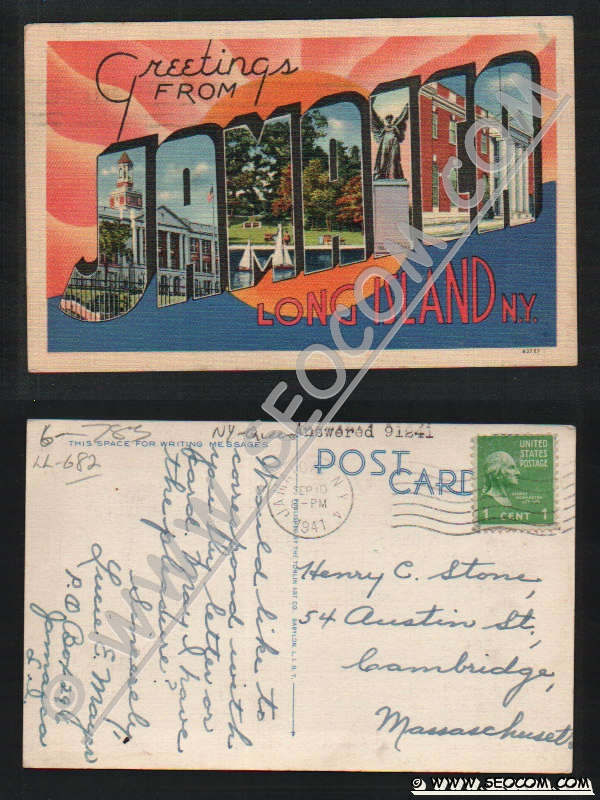 Greetings
FROM
JAMAICA
LONG ISLAND N.Y.
© WWW.SEOCOM.COM
6-783
LL-682
NY-
Answered 91241
THIS SPACE FOR WRITING MESSAGES
POST
CARD
JAMAICA N.Y.
SEP 10
-PM
1941
UNITED
STATES
POSTAGE
1 CENT 1
Would like to
correspond with
you by letter or
card. May I have
the pleasure?
Sincerely,
E. Mayer
P.O. Box 296
Jamaica
L.I.
Henry C. Stone,
54 Austin St.,
Cambridge,
Massachusetts
© WWW.SEOCOM.COM